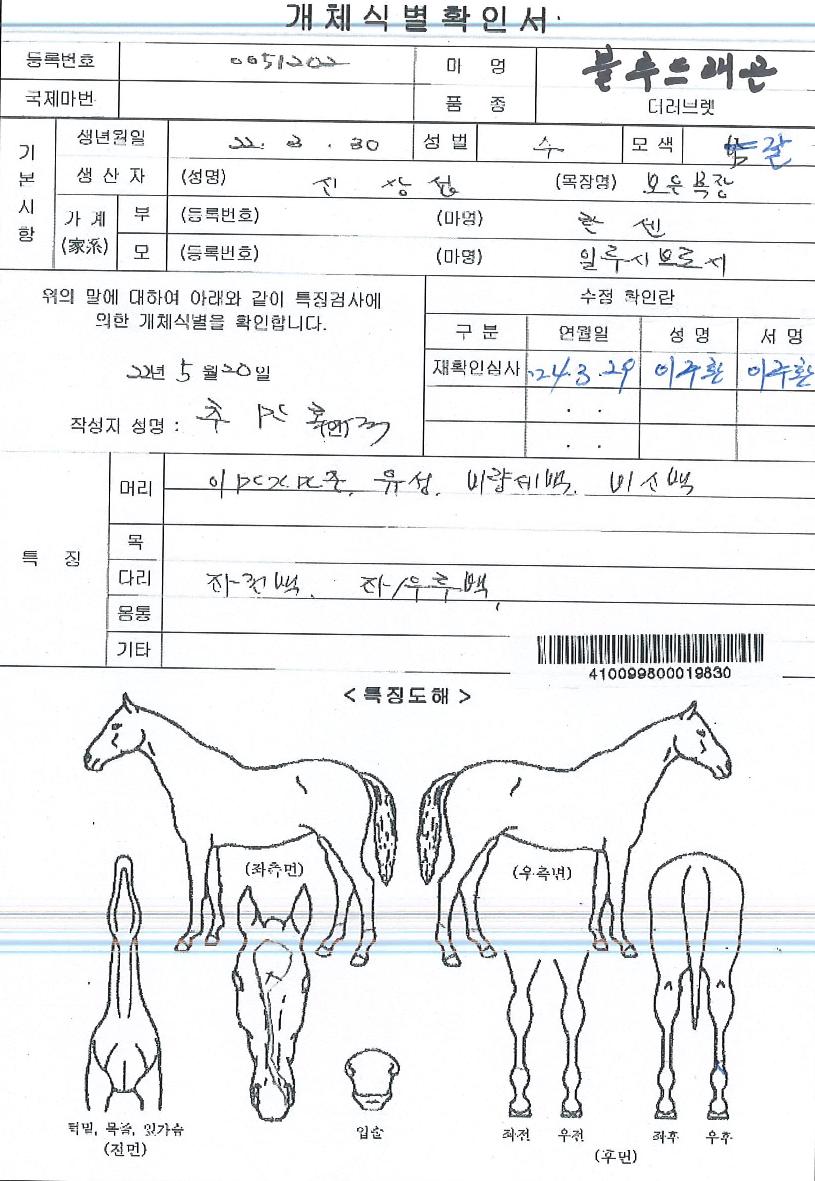 개체식별확인서
등록번호 0051202 마 명 블루드래곤
국제마번 품 종 더러브렛
기본사항 생년월일 22. 3. 30 성 별 수 모 색 갈
생 산 자 (성명) (목장명)
가 계 (家系) 부 (등록번호) (마명) 한센
모 (등록번호) (마명) 일루시브로지
위의 말에 대하여 아래와 같이 특징검사에
의한 개체식별을 확인합니다.
22년 5월 20일
작성자 성명 : (인)
수정 확인란
구 분 연월일 성 명 서 명
재확인심사 '24. 3. 29 이주환 이주환
. .
. .
특 징
머리 유성, 비량세백, 비소백
목
다리 좌전백. 좌/우후백,
몸통
기타
410099800019830
< 특징도해 >
(좌측면) (우측면)
턱밑, 목줄, 앞가슴 입술 좌전 우전 좌후 우후
(전면) (후면)